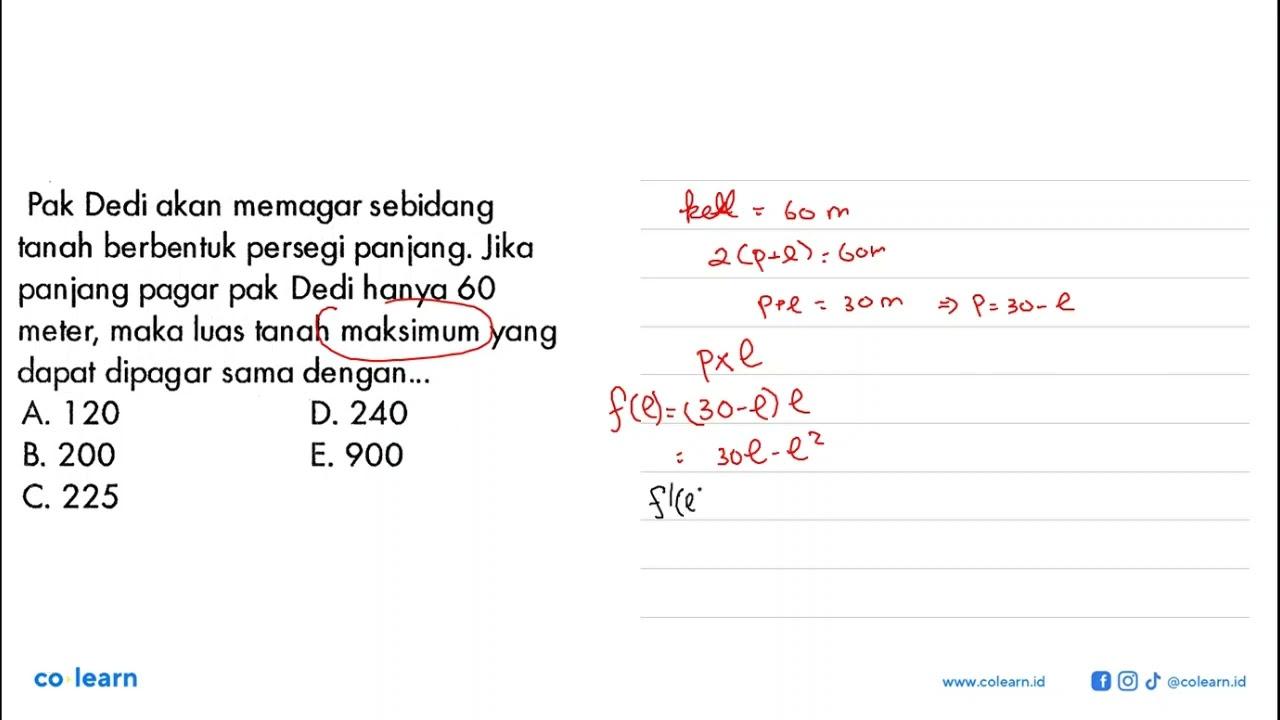 Pak Dedi akan memagar sebidang
tanah berbentuk persegi panjang. Jika
panjang pagar pak Dedi hanya 60
meter, maka luas tanah maksimum yang
dapat dipagar sama dengan...
A. 120 D. 240
B. 200 E. 900
C. 225
kell = 60 m
2(p+l) = 60m
p+l = 30 m ⇒ p = 30 - l
p x l
f(l) = (30-l) l
= 30l - l²
f'(l
co learn
www.colearn.id @colearn.id